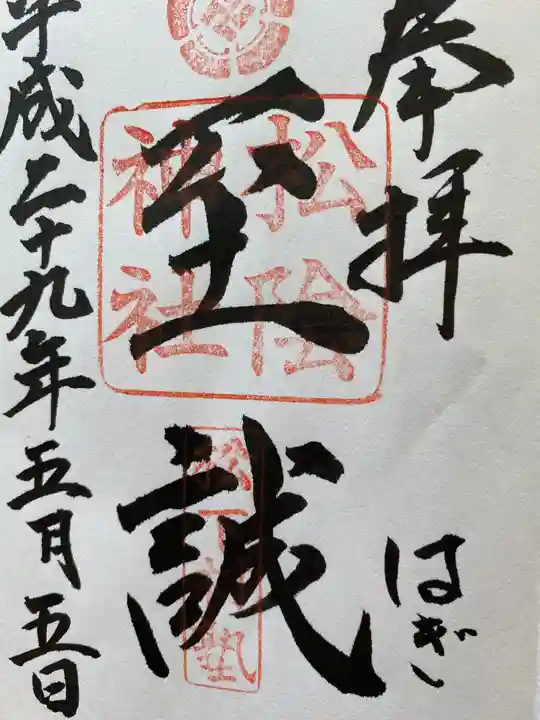 奉拝
はぎ
松陰
神社
至
誠
松下村塾
平成二十九年五月五日